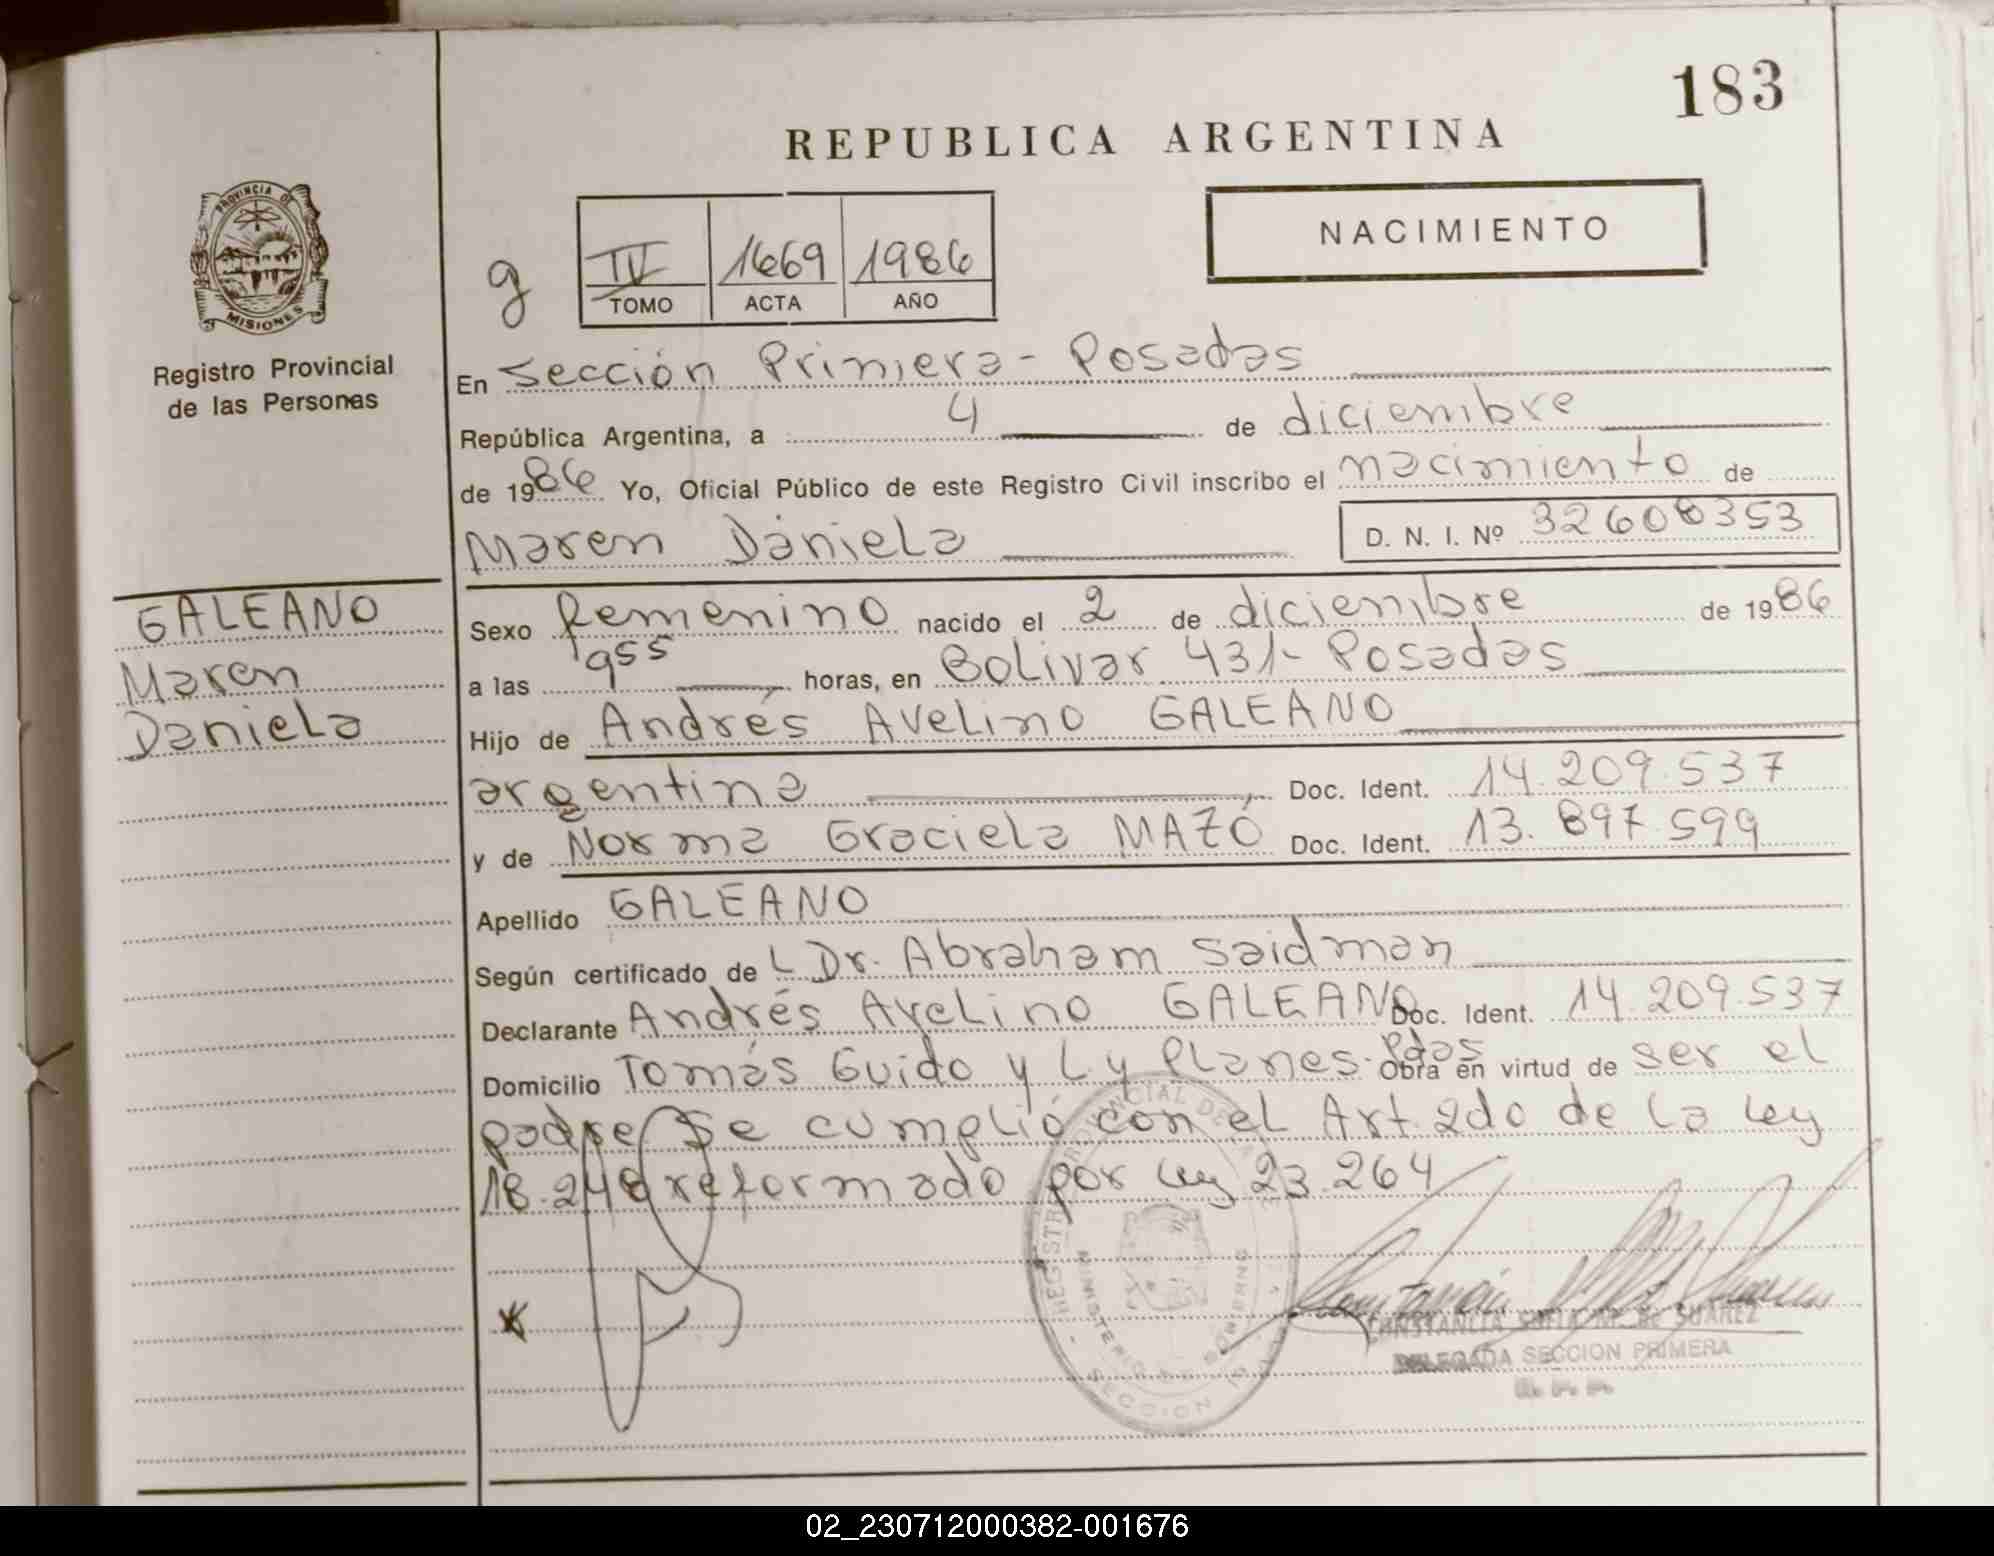 183
REPUBLICA ARGENTINA
PROVINCIA DE
MISIONES
Registro Provincial
de las Personas
g
IV 1669 1986
TOMO ACTA AÑO
NACIMIENTO
En Sección Primera - Posadas
República Argentina, a 4 de diciembre
de 1986 Yo, Oficial Público de este Registro Civil inscribo el nacimiento de
Maren Daniela D. N. I. Nº 32608353
GALEANO
Maren
Daniela
Sexo femenino nacido el 2 de diciembre de 1986
a las 955 horas, en Bolivar 431- Posadas
Hijo de Andrés Avelino GALEANO
argentina Doc. Ident. 14.209.537
y de Norma Graciela MAZÓ Doc. Ident. 13.897.599
Apellido GALEANO
Según certificado de L Dr. Abraham Saidman
Declarante Andrés Avelino GALEANO Doc. Ident. 14.209.537
Domicilio Tomás Guido y L y Planes. Pdas Obra en virtud de ser el
padre Se cumplió con el Art. 2do de la ley
18.248 reformado por ley 23.264
CONSTANCIA SOFIA M. de SUAREZ
DELEGADA SECCION PRIMERA
02_230712000382-001676